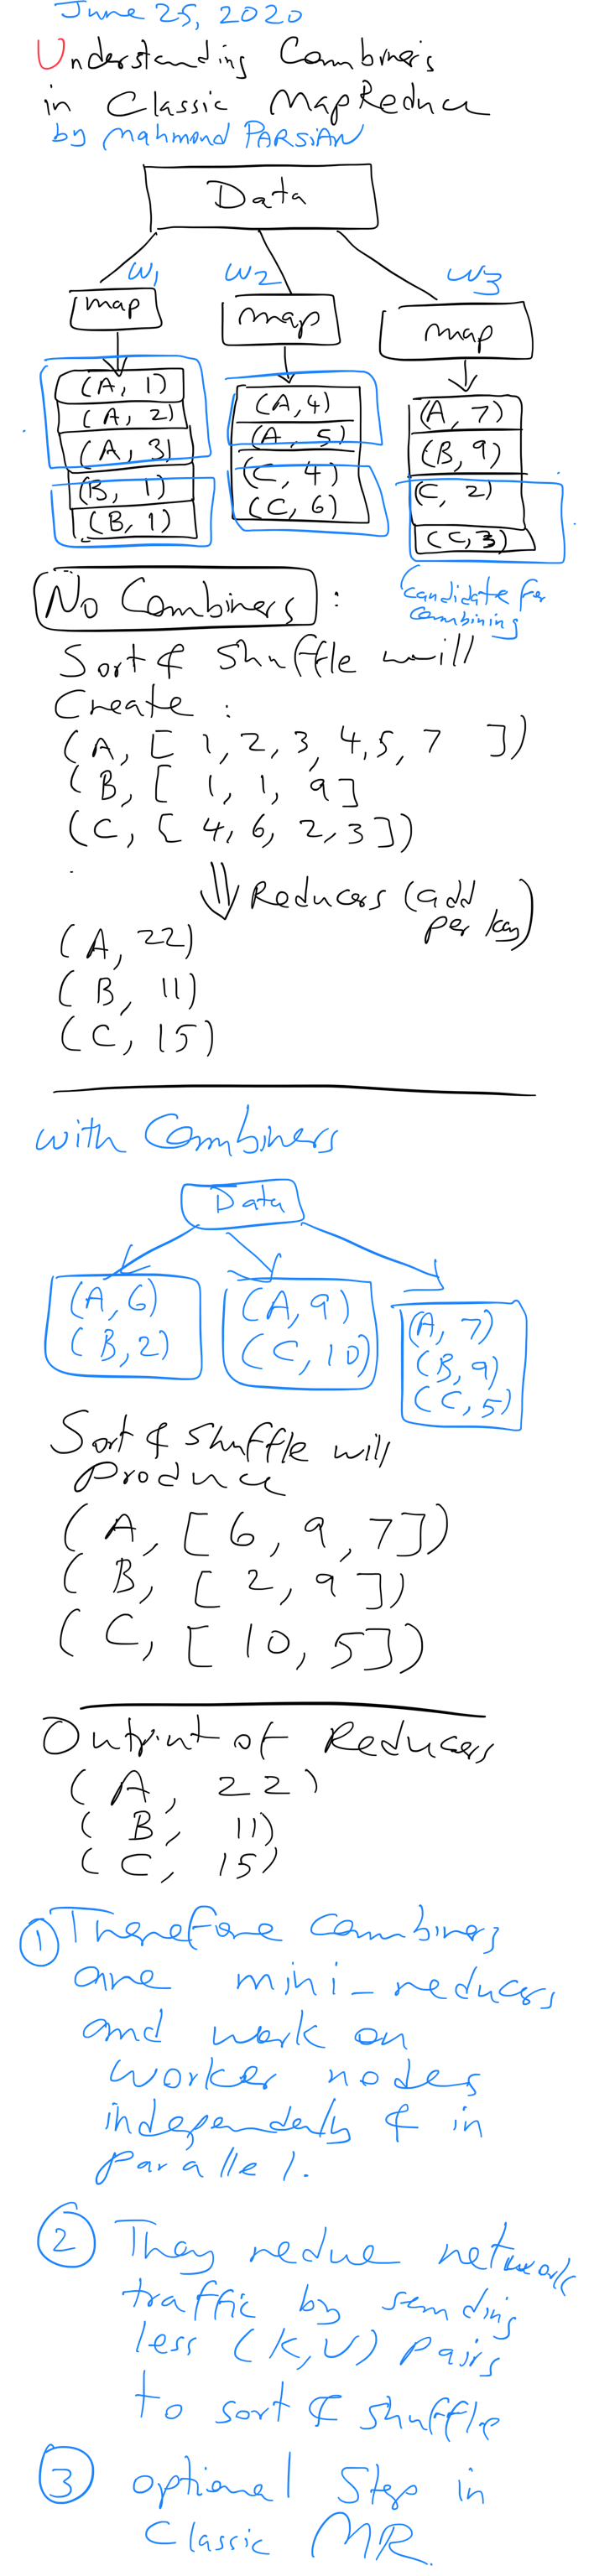 June 25, 2020
Understanding Combiners
in Classic MapReduce
by Mahmoud PARSIAN
Data
W1 W2 W3
map map map
(A, 1)
(A, 2)
(A, 3)
(B, 1)
(B, 1)
(A, 4)
(A, 5)
(C, 4)
(C, 6)
(A, 7)
(B, 9)
(C, 2)
(C, 3)
Candidate for
Combining
No Combiners :
Sort & Shuffle will
Create :
(A, [ 1, 2, 3, 4, 5, 7 ])
(B, [ 1, 1, 9 ]
(C, [ 4, 6, 2, 3 ])
Reducers (add
per key)
(A, 22)
(B, 11)
(C, 15)
with Combiners
Data
(A, 6)
(B, 2)
(A, 9)
(C, 10)
(A, 7)
(B, 9)
(C, 5)
Sort & Shuffle will
produce
(A, [ 6, 9, 7 ])
(B, [ 2, 9 ])
(C, [ 10, 5 ])
Output of Reducers
(A, 22)
(B, 11)
(C, 15)
1 Therefore combiners
are mini-reducers
and work on
worker nodes
independently & in
parallel.
2 They reduce network
traffic by sending
less (K, V) pairs
to sort & shuffle
3 optional Step in
Classic MR